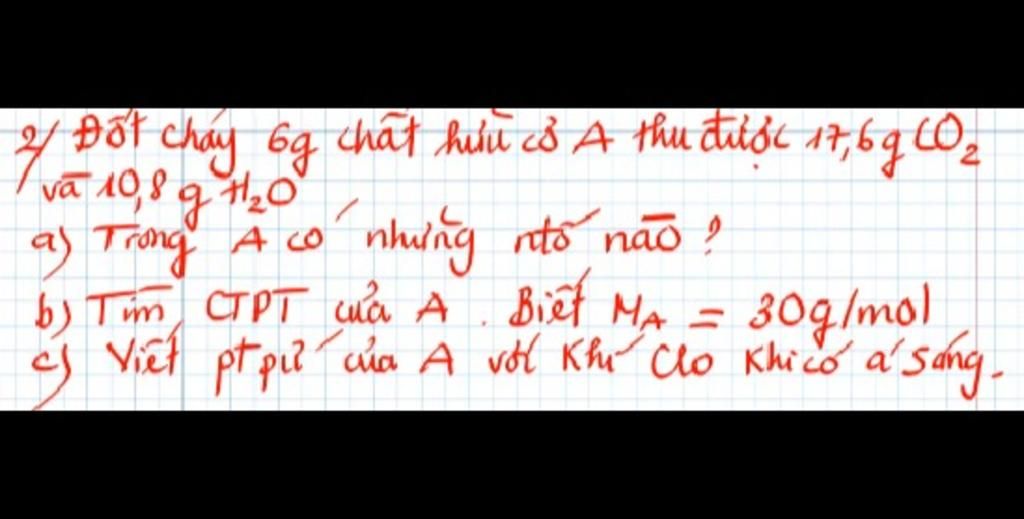 2/ Đốt cháy 6g chất hữu cơ A thu được 17,6g CO₂
và 10,8g H₂O
a) Trong A có những ntố nào?
b) Tìm CTPT của A. Biết MA = 30g/mol
c) Viết ptpứ của A với Khí Clo Khi có á sáng.